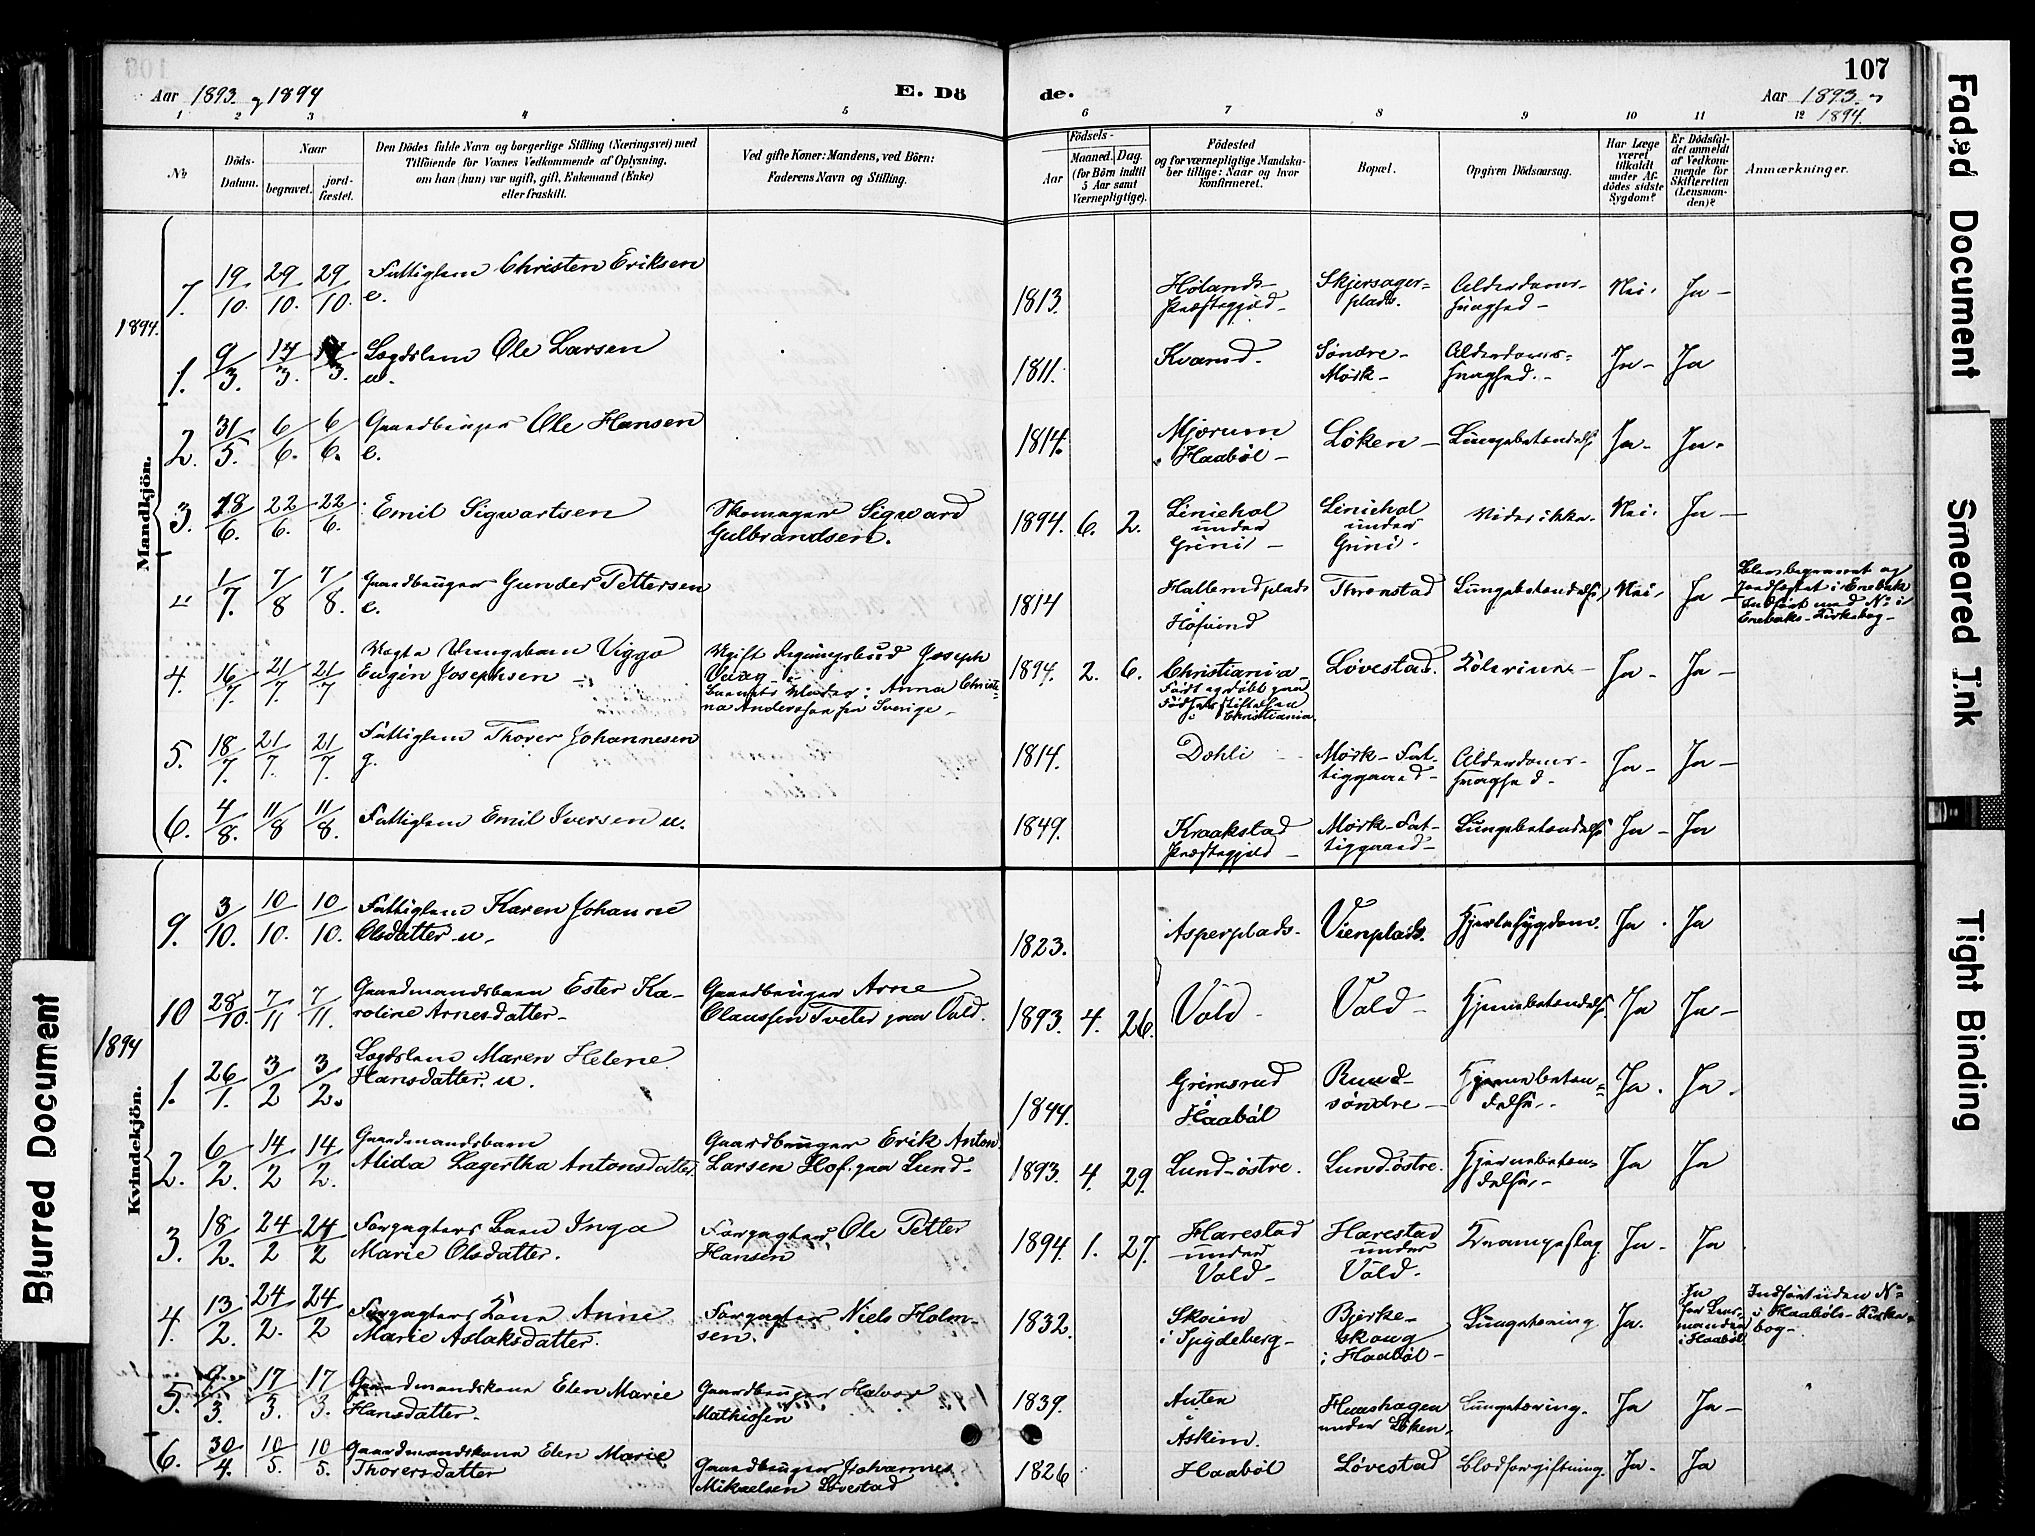 107
Aar 1893 og 1894
E. Dö
de.
Aar 1893 og
1894.
1 2 3 4 5 6 7 8 9 10 11 12
№
Döds-
Datum.
Naar
begravet.
jord-
fæstet.
Den Dödes fulde Navn og borgerlige Stilling (Næringsvei) med
Tilföiende for Voxnes Vedkommende af Oplysning,
om han (hun) var ugift, gift, Enkemand (Enke)
eller fraskilt.
Ved gifte Koner: Mandens, ved Börn:
Faderens Navn og Stilling.
Födsels-
Aar
Maaned. Dag.
(for Börn indtil
5 Aar samt
Værnepligtige).
Födested
og for værnepligtige Mandska-
ber tillige: Naar og hvor
konfirmeret.
Bopæl.
Opgiven Dödsaarsag.
Har Læge
været
tilkaldt
under Af-
dödes sidste
Sygdom?
Er Dödsfal-
det anmeldt
af Vedkom-
mende for
Skifteretten
(Lensman-
den)?
Anmærkninger.
Mandkjön.
7. 19/10. 29/10. 29/10. Fattiglem Christen Eriksen
e.
1813. Hølands-
Præstegjeld- Skjersager-
plads. Alderdoms-
svaghed- Nei. Ja-
1894.
1. 9/3. 17/3. 17/3. Lægdslem Ole Larsen
u.
1811. Kværnd. Søndre-
Mørk- Alderdoms-
svaghed.- Ja- Ja
2. 31/5. 6/6. 6/6. Gaardbruger Ole Hansen
e.
1814. Mjærum
i Haabøl- Løken- Lungebetændelse Ja- Ja.
3. 18/6. 22/6. 22/6. Emil Sigwartsen
Skomager Sigward
Gulbrandsen.
1894. 6. 2. Liniehol
under
Grini- Liniehol
under
Grini. Vides ikke. Nei. Ja-
1/7. 7/8 7/8. Gaardbruger Gunder Pettersen
e.
1814 Lungebetændelse Nei, Ja-
jordfæstet i Enebak
Indført med № i
Enebaks-Kirkebog-
4. 16/7. 21/7. 21/7. Viggo
Eugen Josephsen-
Joseph
Barnets Moder: Anna Christi-
na Andersson fra Sverige-
1894. 2. 6. Christiania-
Født og døbt paa
Fødselsstiftelsen
i Christiania. Løvestad. Kolerine- Ja- Ja-
5. 18/7. 21/7. 21/7. Fattiglem Thorer Johannesen
g.
1814. Dohli Mørk-Fat-
tiggaard- Alderdoms-
svaghed- Ja- Ja-
6. 4/8. 11/8 11/8. Fattiglem Emil Iversen u.
1849. Kraakstad
Præstegjeld- Mørk-Fat-
tiggaard- Lungebetændelse Ja- Ja
Kvindekjön.
9. 3/10. 10/10. 10/10. Fattiglem Karen Johanne
Olsdatter u-
1823. Asperplads- Vienplads. Hjertesygdom. Ja. Ja
10 28/10. 7/11 7/11. Gaardmandsbarn Ester Ka-
roline Arnesdatter-
Gaardbruger Arne
Claussen Tveter paa Vold.
1893. 4. 26. Vold- Vold- Hjernebetændelse. Ja Ja-
1894
1. 26/1. 3/2 3/2. Lægdslem Maren Helene
Hansdatter. u.
1844. Grimsrud
i
Haabøl Rud-
søndre- Hjernebetæn-
delse.- Ja. Ja-
2. 6/2. 14/2 14/2. Gaardmandsbarn
Alida Lagertha Antonsdatter.
Gaardbruger Erik Anton
Larsen Hof. paa Lund-
1893. 4. 29. Lund-østre. Lund-østre. Hjernebetæn-
delse.- Ja Ja
3. 18/2. 24/2 24/2 Forpagters Barn Inga
Marie Olsdatter.
Forpagter Ole Petter
Hansen
1894. 1. 27. Harestad
under
Vold- Harestad
under
Vold. Krampeslag. Ja- Ja
4. 13/2. 24/2. 24/2 Forpagters Kone Anne
Marie Aslaksdatter.
Forpagter Niels Holm-
sen.
1832. Skoien
i Spydeberg- Bjerke-
skoug
i Haabøl- Lungetæring Ja. Ja
for Lens-
manden
i Haabøl
Indført uden №
i Haabøls-Kirke-
bog-
5. 9/3. 17/3. 17/3. Gaardmandskone Elen Marie
Hansdatter.
Gaardbruger Halvor
Mathissen
1839. Auten
i
Askim. Huushagen
under Løken. Lungetæring. Ja Ja-
6. 30/4. 10/5. 10/5. Gaardmandskone Elen Marie
Thorersdatter
Gaardbruger Johannes
Mikaelsen Løvestad
1826 Haabøl Løvestad Blodforgiftning. Ja- Ja
Blurred Document
Faded Document
Smeared Ink
Tight Binding